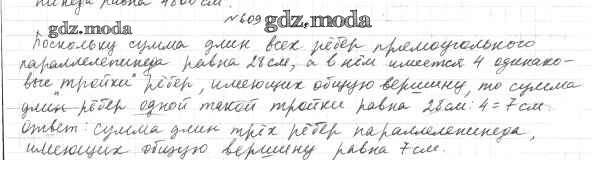 пипеда равна 4800 см.
gdz.moda № 609 gdz.moda
Поскольку сумма длин всех рёбер прямоугольного
параллелепипеда равна 28 см, а в нём имеется 4 одинако-
вые "тройки" рёбер, имеющих общую вершину, то сумма
длин рёбер одной такой тройки равна 28 см : 4 = 7 см.
Ответ: сумма длин трёх рёбер параллелепипеда,
имеющих общую вершину равна 7 см.